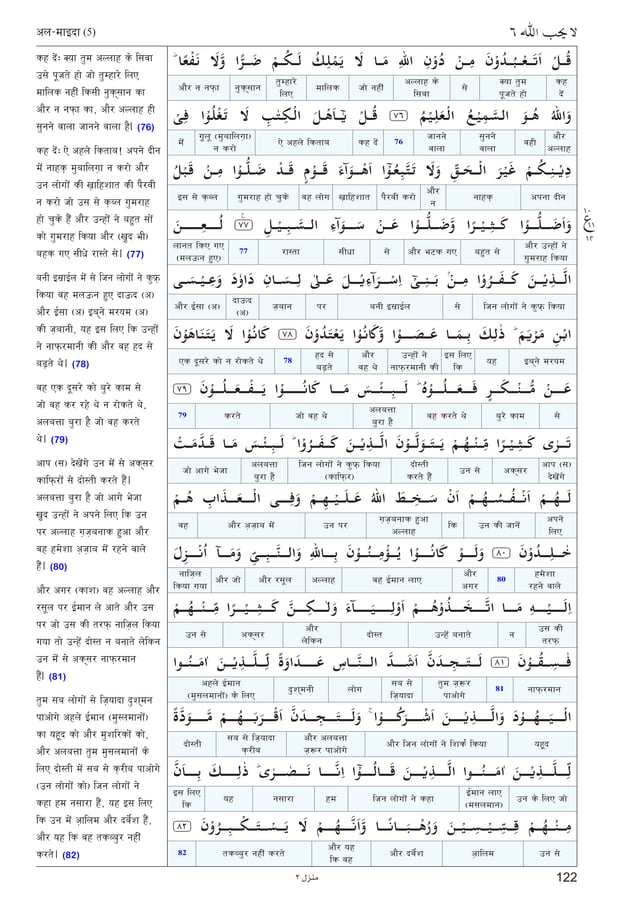 अल-माइदा (5)
لا یحب اللہ ٦
कह देंः क्या तुम अल्लाह के सिवा
उसे पूजते हो जो तुम्हारे लिए
मालिक नहीं किसी नुक़्सान का
और न नफ़ा का, और अल्लाह ही
सुनने वाला जानने वाला है। (76)
कह देंः ऐ अहले किताब! अपने दीन
में नाहक़ मुबालिग़ा न करो और
उन लोगों की ख़ाहिशात की पैरवी
न करो जो उस से क़ब्ल गुमराह
हो चुके हैं और उन्होंने ने बहुत सों
को गुमराह किया और (ख़ुद भी)
बहक गए सीधे रास्ते से। (77)
बनी इस्राईल में से जिन लोगों ने कुफ़्र
किया वह मलऊन हुए दाऊद (अ)
और ईसा (अ) इब्ने मरयम (अ)
की ज़बानी, यह इस लिए कि उन्हों
ने नाफ़रमानी की और वह हद से
बढ़ते थे। (78)
वह एक दूसरे को बुरे काम से
जो वह कर रहे थे न रोकते थे,
अलबत्ता बुरा है जो वह करते
थे। (79)
आप (स) देखेंगे उन में से अक्सर
काफ़िरों से दोस्ती करते हैं।
अलबत्ता बुरा है जो आगे भेजा
ख़ुद उन्होंने ने अपने लिए कि उन
पर अल्लाह ग़ज़बनाक हुआ और
वह हमेशा अज़ाब में रहने वाले
हैं। (80)
और अगर (काश) वह अल्लाह और
रसूल पर ईमान ले आते और उस
पर जो उस की तरफ़ नाज़िल किया
गया तो उन्हें दोस्त न बनाते लेकिन
उन में से अक्सर नाफ़रमान
हैं। (81)
तुम सब लोगों से ज़ियादा दुश्मन
पाओगे अहले ईमान (मुसलमानों)
का यहूद को और मुशरिकों को,
और अलबत्ता तुम मुसलमानों के
लिए दोस्ती में सब से क़रीब पाओगे
(उन लोगों को) जिन लोगों ने
कहा हम नसारा हैं, यह इस लिए
कि उन में आ़लिम और दर्वेश हैं,
और यह कि वह तकब्बुर नहीं
करते। (82)
قُلْ اَتَعْبُدُوْنَ مِنْ دُوْنِ اللّٰهِ مَا لَا يَمْلِكُ لَكُمْ ضَرًّا وَّلَا نَفْعًا ؕ
और न नफ़ा | नुक़्सान | तुम्हारे लिए | मालिक | जो नहीं | अल्लाह के सिवा | से | क्या तुम पूजते हो | कह दें
وَاللّٰهُ هُوَ السَّمِيْعُ الْعَلِيْمُ ﴿٧٦﴾ قُلْ يٰۤاَهْلَ الْكِتٰبِ لَا تَغْلُوْا فِيْ
में | ग़ुलू (मुबालिग़ा) न करो | ऐ अहले किताब | कह दें | 76 | जानने वाला | सुनने वाला | वही | और अल्लाह
دِيْنِكُمْ غَيْرَ الْحَقِّ وَلَا تَتَّبِعُوْۤا اَهْوَآءَ قَوْمٍ قَدْ ضَلُّوْا مِنْ قَبْلُ
इस से क़ब्ल | गुमराह हो चुके | वह लोग | ख़ाहिशात | पैरवी करो | और न | नाहक़ | अपना दीन
وَاَضَلُّوْا كَثِيْرًا وَّضَلُّوْا عَنْ سَوَآءِ السَّبِيْلِ ﴿٧٧﴾ لُعِنَ
लानत किए गए (मलऊन हुए) | 77 | रास्ता | सीधा | से | और भटक गए | बहुत से | और उन्हों ने गुमराह किया
الَّذِيْنَ كَفَرُوْا مِنْۢ بَنِيْۤ اِسْرَآءِيْلَ عَلٰى لِسَانِ دَاوٗدَ وَعِيْسَى
और ईसा (अ) | दाऊद (अ) | ज़बान | पर | बनी इस्राईल | से | जिन लोगों ने कुफ़्र किया
ابْنِ مَرْيَمَ ؕ ذٰلِكَ بِمَا عَصَوْا وَّكَانُوْا يَعْتَدُوْنَ ﴿٧٨﴾ كَانُوْا لَا يَتَنَاهَوْنَ
एक दूसरे को न रोकते थे | 78 | हद से बढ़ते | और वह थे | उन्हों ने नाफ़रमानी की | इस लिए कि | यह | इब्ने मरयम
عَنْ مُّنْكَرٍ فَعَلُوْهُ ؕ لَبِئْسَ مَا كَانُوْا يَفْعَلُوْنَ ﴿٧٩﴾
79 | करते | जो वह थे | अलबत्ता बुरा है | वह करते थे | बुरे काम | से
تَرٰى كَثِيْرًا مِّنْهُمْ يَتَوَلَّوْنَ الَّذِيْنَ كَفَرُوْا ؕ لَبِئْسَ مَا قَدَّمَتْ
जो आगे भेजा | अलबत्ता बुरा है | जिन लोगों ने कुफ़्र किया (काफ़िर) | दोस्ती करते हैं | उन से | अक्सर | आप (स) देखेंगे
لَهُمْ اَنْفُسُهُمْ اَنْ سَخِطَ اللّٰهُ عَلَيْهِمْ وَفِي الْعَذَابِ هُمْ
वह | और अज़ाब में | उन पर | ग़ज़बनाक हुआ अल्लाह | कि | उन की जानें | अपने लिए
خٰلِدُوْنَ ﴿٨٠﴾ وَلَوْ كَانُوْا يُؤْمِنُوْنَ بِاللّٰهِ وَالنَّبِيِّ وَمَاۤ اُنْزِلَ
नाज़िल किया गया | और जो | और रसूल | अल्लाह | वह ईमान लाए | और अगर | 80 | हमेशा रहने वाले
اِلَيْهِ مَا اتَّخَذُوْهُمْ اَوْلِيَآءَ وَلٰكِنَّ كَثِيْرًا مِّنْهُمْ
उन से | अक्सर | और लेकिन | दोस्त | उन्हें बनाते | न | उस की तरफ़
فٰسِقُوْنَ ﴿٨١﴾ لَتَجِدَنَّ اَشَدَّ النَّاسِ عَدَاوَةً لِّلَّذِيْنَ اٰمَنُوا
अहले ईमान (मुसलमानों) के लिए | दुश्मनी | लोग | सब से ज़ियादा | तुम ज़रूर पाओगे | 81 | नाफ़रमान
الْيَهُوْدَ وَالَّذِيْنَ اَشْرَكُوْا ۚ وَلَتَجِدَنَّ اَقْرَبَهُمْ مَّوَدَّةً
दोस्ती | सब से ज़ियादा क़रीब | और अलबत्ता ज़रूर पाओगे | और जिन लोगों ने शिर्क किया | यहूद
لِّلَّذِيْنَ اٰمَنُوا الَّذِيْنَ قَالُوْۤا اِنَّا نَصٰرٰى ؕ ذٰلِكَ بِاَنَّ
इस लिए कि | यह | नसारा | हम | जिन लोगों ने कहा | ईमान लाए (मुसलमान) | उन के लिए जो
مِنْهُمْ قِسِّيْسِيْنَ وَرُهْبَانًا وَّاَنَّهُمْ لَا يَسْتَكْبِرُوْنَ ﴿٨٢﴾
82 | तकब्बुर नहीं करते | और यह कि वह | और दर्वेश | आ़लिम | उन से
١٠
ع
١١
١٣
منزل ٢
122